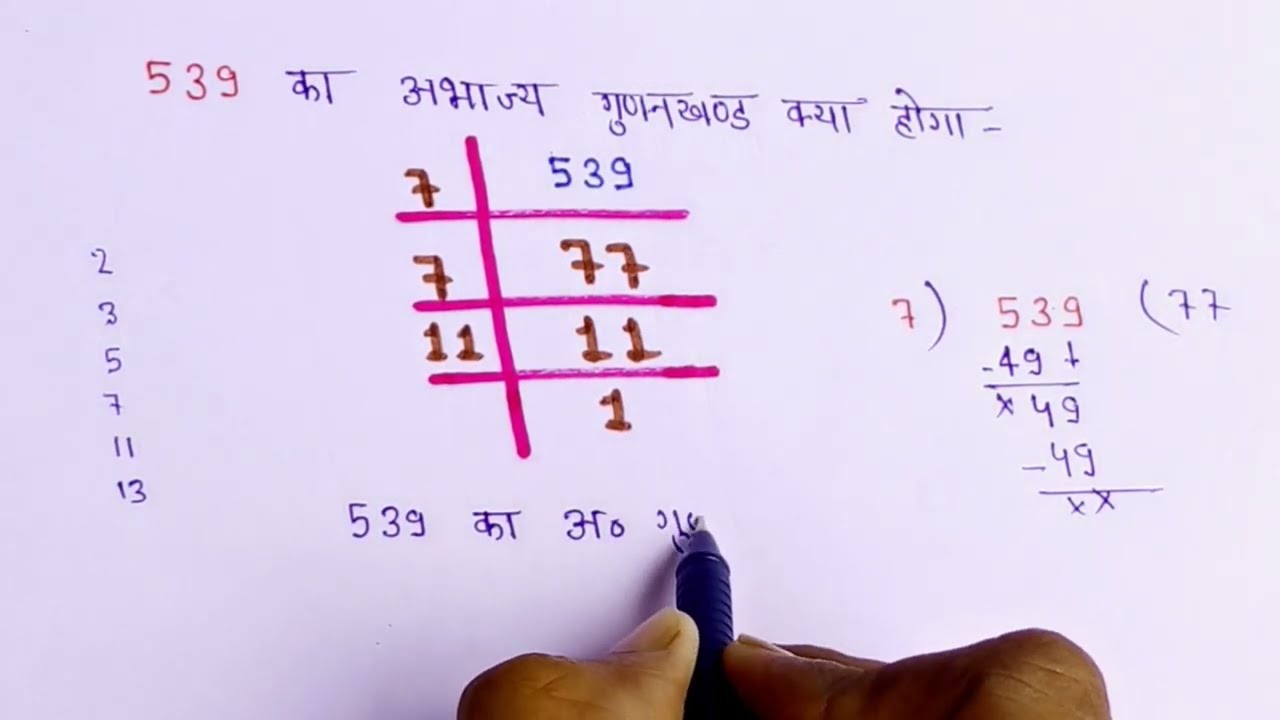 539 का अभाज्य गुणनखण्ड क्या होगा -
7 539
7 77
11 11
1
2
3
5
7
11
13
7) 539 (77
-49↓
×49
-49
××
539 का अ०